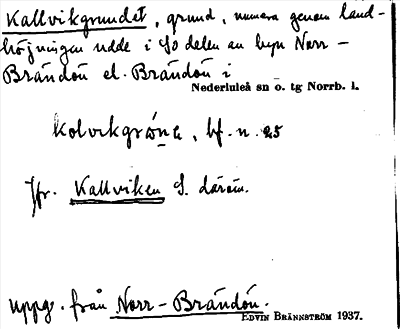 Kallvikgrundet, grund, numera genom land-
höjningen udde i SO delen av byn Norr-
Brändön el. Brändön i
Nederluleå sn o. tg Norrb. l.
kolvikgrōne, bf. n. 25
Jfr. Kallviken S. därom.
uppg. från Norr-Brändön.
EDVIN BRÄNNSTRÖM 1937.